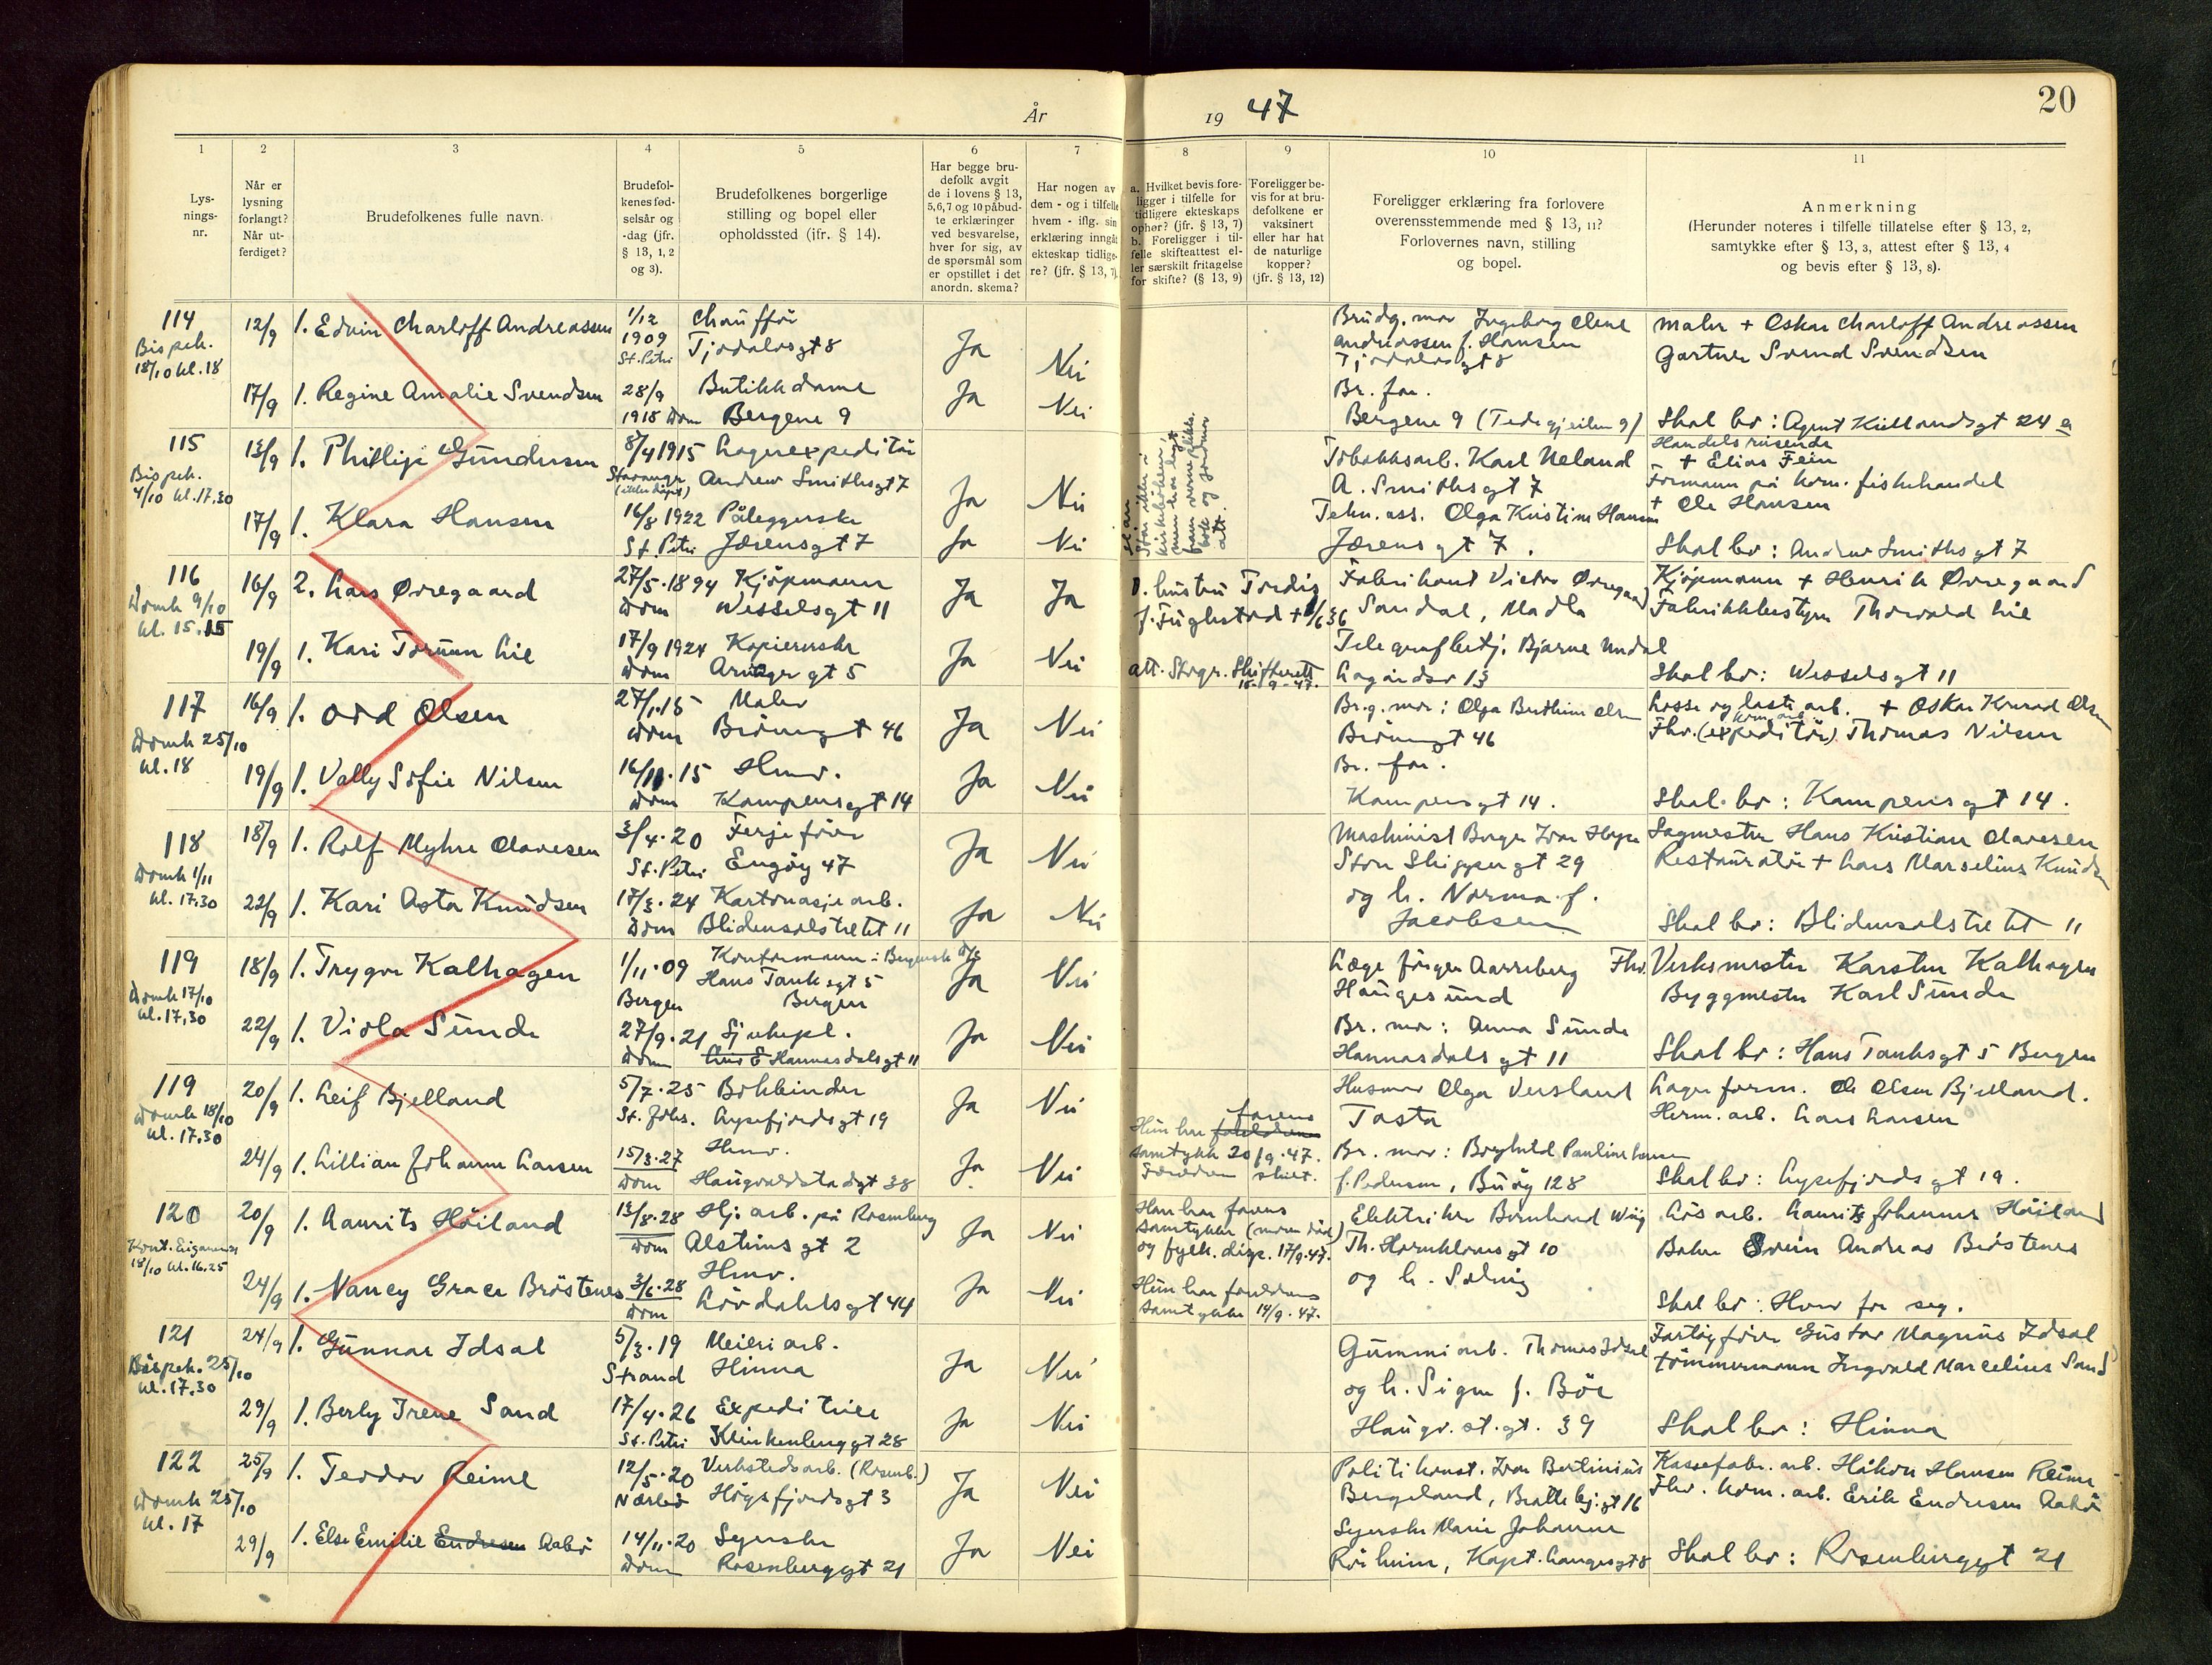 År 19 47
20
1
2
3
4
5
6
7
8
9
10
11
Lys-
nings-
nr.
Når er
lysning
forlangt?
Når ut-
ferdiget?
Brudefolkenes fulle navn.
Brudefol-
kenes fød-
selsår og
-dag (jfr.
§ 13, 1, 2
og 3).
Brudefolkenes borgerlige
stilling og bopel eller
opholdssted (jfr. § 14).
Har begge bru-
defolk avgit
de i lovens § 13,
5,6,7 og 10 påbud-
te erklæringer
ved besvarelse,
hver for sig, av
de spørsmål som
er opstillet i det
anordn. skema?
Har nogen av
dem - og i tilfelle
hvem - iflg. sin
erklæring inngått
ekteskap tidlige-
re? (jfr. § 13, 7).
a. Hvilket bevis fore-
ligger i tilfelle for
tidligere ekteskaps
ophør? (jfr. § 13, 7)
b. Foreligger i til-
felle skifteattest el-
ler særskilt fritagelse
for skifte? (§ 13, 9)
Foreligger be-
vis for at bru-
defolkene er
vaksinert
eller har hat
de naturlige
kopper?
(jfr. § 13, 12)
Foreligger erklæring fra forlovere
overensstemmende med § 13, 11?
Forlovernes navn, stilling
og bopel.
Anmerkning
(Herunder noteres i tilfelle tillatelse efter § 13, 2,
samtykke efter § 13, 3, attest efter § 13, 4
og bevis efter § 13, 8).
114
Bispek.
18/10 kl. 18
12/9
1. Edvin Charloff Andreassen
1/12
1909
St. Petri
Chauffør
Tjodolvsgt 8
Ja
Nei
Brudg. mor Ingeborg Elene
Andreassen f. Hansen
Tjodolvsgt 8
Maler + Oskar Charloff Andreassen
Gartner Svend Svendsen
17/9
1. Regine Amalie Svendsen
28/9
1918 Dom
Butikkdame
Bergene 9
Ja
Nei
Br. far.
Bergene 9
Skal bo: Agent Kiellandsgt 24 a
115
Bispek.
4/10 kl. 17.30
13/9
1. Phillip Gundersen
8/4 1915
Stavanger
Lagerekspeditør
Andrew Smithsgt 7
Ja
Nei
Tobakksarb. Karl Neland
A. Smithsgt 7
Handelsreisende
+ Elias Fein
17/9
1. Klara Hansen
16/8 1922
St. Petri
Påleggerske
Jærensgt 7
Ja
Nei
Tekn. ass. Olga Kristine Hansen
Jærensgt 7.
Formann på kom. fiskehandel
+ Ole Hansen
Skal bo: Andrew Smithsgt 7
116
Domk 9/10
kl. 15.15
16/9
2. Lars Ovregaard
27/5. 1894
Dom
Kjøpmann
Wesselsgt 11
Ja
Ja
f. Fuglestad
Fabrikant Victor Ovregaard
Sandal, Madla
Kjøpmann + Henrik Ovregaard
Fabrikkbestyrer Thorvald Lie
19/9
1. Kari Torunn Lie
17/9 1924
Dom
Kopiererske
gt 5
Ja
Nei
att. Stvgr. Skifterett
18-9-47.
Telegrafbetj. Bjarne Undal
Lagårdsv 13
Skal bo: Wesselsgt 11
117
Domk 25/10
kl. 18
16/9
1. Odd Olsen
27/1.15
Dom
Maler
gt 46
Ja
Nei
Br.g. mor: Olga Olsen
gt 46
Losse og laste arb. + Oskar Konrad Olsen
Fhv. (expeditør) Thomas Nilsen
19/9
1. Vally Sofie Nilsen
16/11.15
Dom
Hmv.
Kampensgt 14
Ja
Nei
Br. far.
Kampensgt 14.
Skal bo: Kampensgt 14.
118
Domk 1/11
kl. 17.30
18/9
1. Rolf Myhre Olavesen
3/4.20
St. Petri
Ferjefører
Engøy 47
Ja
Nei
Maskinist
Store Skippergt 29
Sagmester Hans Kristian Olavesen
Restauratør + Lars Marselius Knudsen
22/9
1. Kari Asta Knudsen
17/3.24
Dom
Kartonasjearb.
Blidensolstretet 11
Ja
Nei
og h. Norma f.
Jacobsen
Skal bo: Blidensolstretet 11
119
Domk 17/10
kl. 17,30
18/9
1. Trygve Kalhagen
1/11.09
Bergen
Kontormann i Bergensk D/S
Hans Tanksgt 5
Bergen
Ja
Nei
Læge Jørgen Aarreberg
Haugesund
Fhv. Verksmester Karsten Kalhagen
Byggmester Karl Sunde
22/9
1. Viola Sunde
27/9.21
Dom
Sjukepl.
Hannasdalsgt 11
Ja
Nei
Br. mor: Anna Sunde
Hannasdalsgt 11
Skal bo: Hans Tanksgt 5 Bergen
119
Domk 18/10
kl. 17.30
20/9
1. Leif Bjelland
5/7.25
St. Johs.
Bokbinder
Lysefjordsgt 19
Ja
Nei
Husmor Olga Versland
Tasta
Lagerform. Ole Olsen Bjelland.
Herm. arb. Lars Larsen
24/9
1. Lillian Johanne Larsen
15/3.27
Dom
Hmv.
Haugvaldstadgt 38
Ja
Nei
Hun har foreldrenes farens
samtykke 20/9.47.
Foreldrene skilt.
Br. mor: Borghild Pauline Larsen
f. Pedersen, Buøy 128
Skal bo: Lysefjordsgt 19.
120
Kont. Eiganes
18/10 kl. 16.25
20/9
1. Laurits Høiland
13/8.28
Dom
Hj. arb. på Rosenberg
Alsteins gt 2
Ja
Nei
Han har farens
samtykke (moren død)
og fylk. disp. 17/9.47.
Elektriker Bernhard Wiig
Th. Hornklovesgt 10
Løsarb. Laurits Johannes Høiland
Baker Svein Andreas Brøstenes
24/9
1. Nancy Grace Brøstenes
3/6.28
Dom
Hmv.
Løvdahlsgt 44
Ja
Nei
Hun har foreldrenes
samtykke 14/9.47.
og h. Solveig
Skal bo: Hver for seg.
121
Bispek. 25/10
kl. 17.30
24/9
1. Gunnar Idsal
5/3.19
Strand
Meieriarb.
Hinna
Ja
Nei
Gummiarb. Thomas Idsal
og h. Signe f. Bøe
Fartøyfører Gustav Magnus Idsal
Tømmermann Ingvald Marcelius Sand
29/9
1. Berly Irene Sand
17/4.26
St. Petri
Expeditrise
Klinkenberggt 28
Ja
Nei
Haugv. st. gt. 39
Skal bo: Hinna
122
Domk 25/10
kl. 17
25/9
1. Teodor Reime
12/5.20
Nærbø
Verkstedsarb. (Rosenb.)
Høgsfjordsgt 3
Ja
Nei
Politikonst. Ivar Bertinius
Bergeland,
Kassefabr. arb. Håkon Hansen Reime
Fhv. kom. arb. Erik Endresen Aabø
29/9
1. Else Emilie Endresen Aabø
14/11.20
Dom
Syerske
Rosenberggt 21
Ja
Nei
Syerske Marie Johanne
Kapt. Langesgt 8
Skal bo: Rosenberggt 21